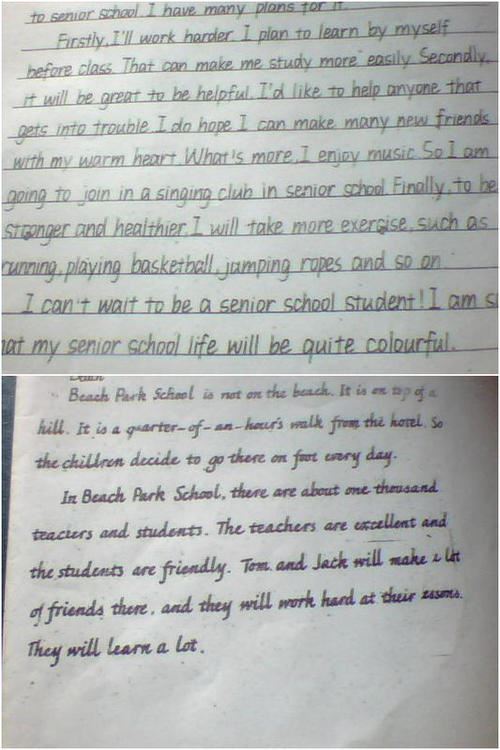 to senior school. I have many plans for it.
Firstly, I'll work harder. I plan to learn by myself
before class. That can make me study more easily. Secondly,
it will be great to be helpful. I'd like to help anyone that
gets into trouble. I do hope I can make many new friends
with my warm heart. What's more, I enjoy music. So I am
going to join in a singing club in senior school. Finally, to be
stronger and healthier, I will take more exercise, such as
running, playing basketball, jumping ropes and so on.
I can't wait to be a senior school student! I am s
hat my senior school life will be quite colourful.
Beach Park School is not on the beach. It is on top of a
hill. It is a quarter-of-an-hour's walk from the hotel. So
the children decide to go there on foot every day.
In Beach Park School, there are about one thousand
teachers and students. The teachers are excellent and
the students are friendly. Tom and Jack will make a lot
of friends there, and they will work hard at their
They will learn a lot.